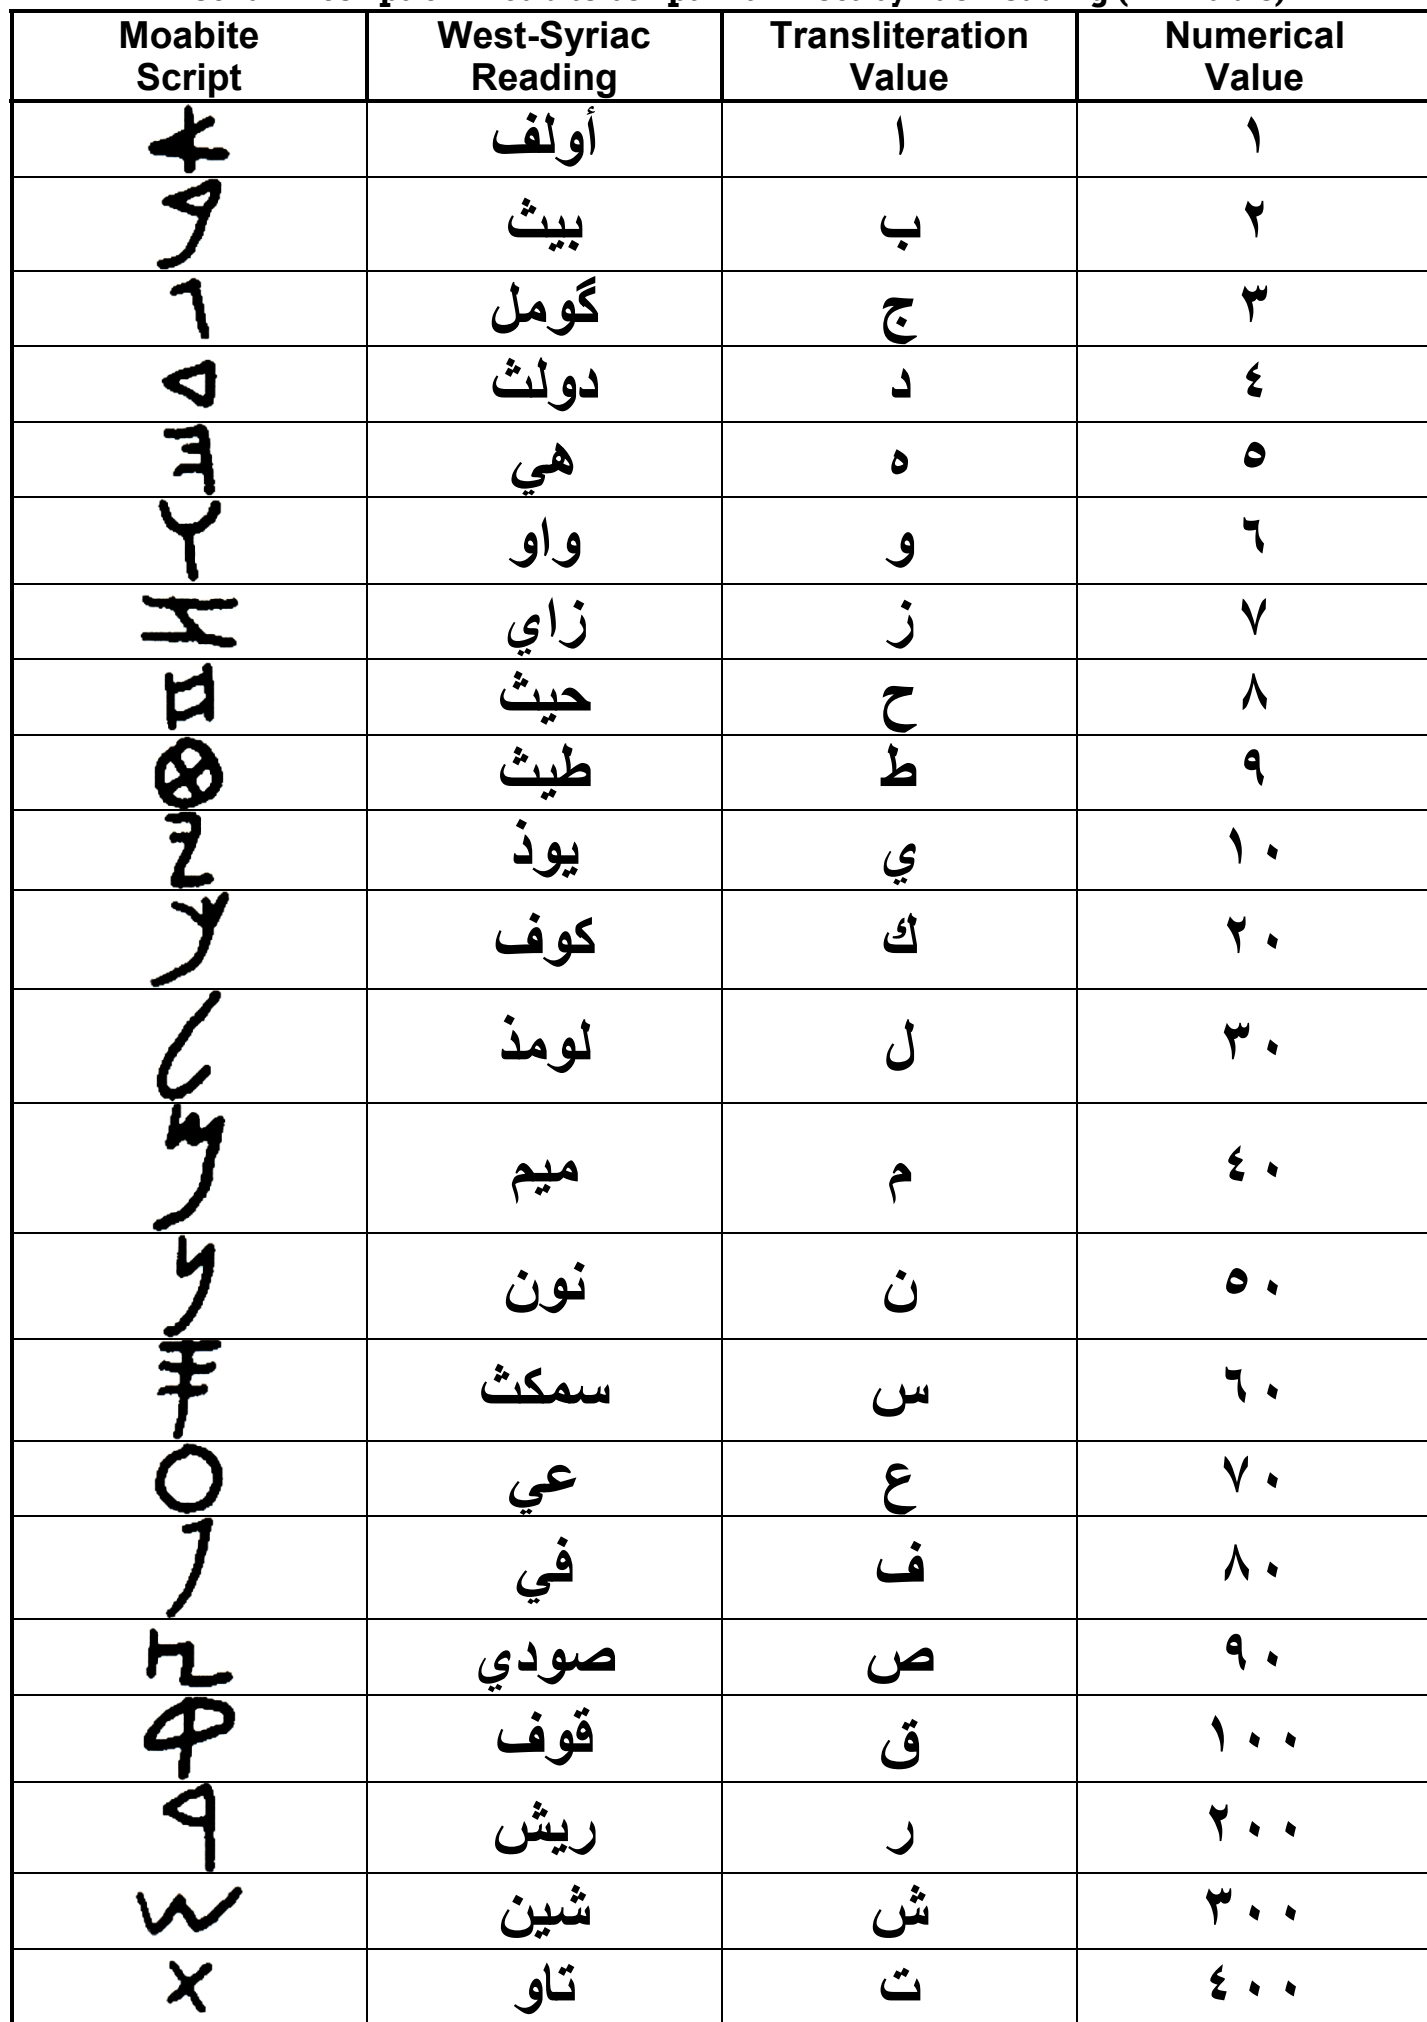 Moabite Script West-Syriac Reading Transliteration Value Numerical Value
𐤀 أولف ا ١
𐤁 بيث ب ٢
𐤂 گومل ج ٣
𐤃 دولث د ٤
𐤄 هي ه ٥
𐤅 واو و ٦
𐤆 زاي ز ٧
𐤇 حيث ح ٨
𐤈 طيث ط ٩
𐤉 يوذ ي ١٠
𐤊 كوف ك ٢٠
𐤋 لومذ ل ٣٠
𐤌 ميم م ٤٠
𐤍 نون ن ٥٠
𐤎 سمكث س ٦٠
𐤏 عي ع ٧٠
𐤐 في ف ٨٠
𐤑 صودي ص ٩٠
𐤒 قوف ق ١٠٠
𐤓 ريش ر ٢٠٠
𐤔 شين ش ٣٠٠
𐤕 تاو ت ٤٠٠